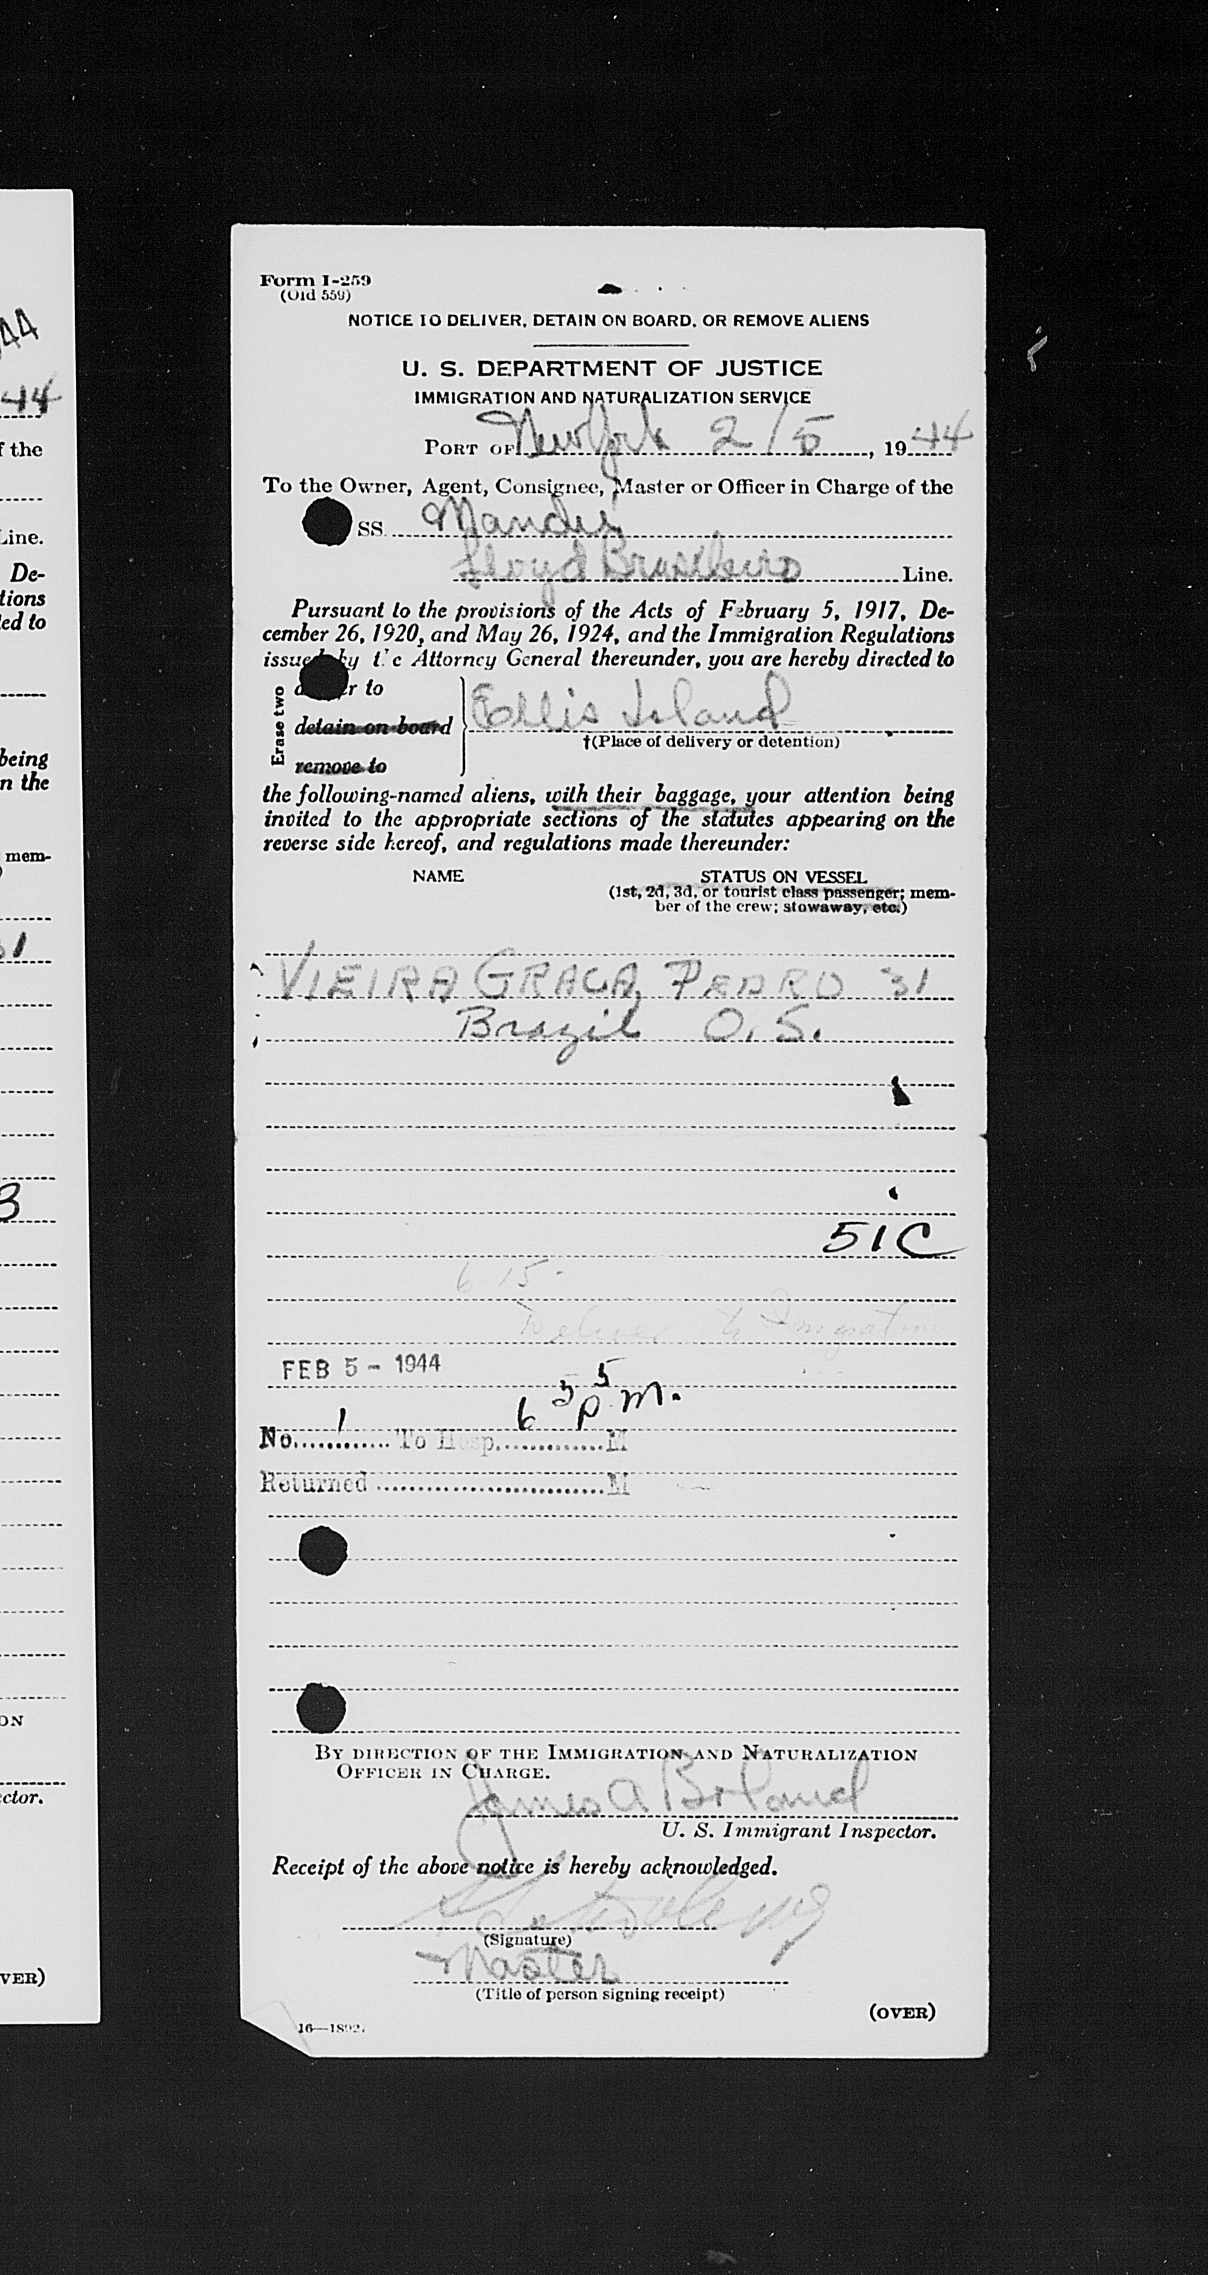 Form I-259
(Old 559)
NOTICE TO DELIVER, DETAIN ON BOARD, OR REMOVE ALIENS
U. S. DEPARTMENT OF JUSTICE
IMMIGRATION AND NATURALIZATION SERVICE
PORT OF New York 2/5, 1944
To the Owner, Agent, Consignee, Master or Officer in Charge of the
SS. Mandu
Lloyd Brasileiro Line.
Pursuant to the provisions of the Acts of February 5, 1917, De-
cember 26, 1920, and May 26, 1924, and the Immigration Regulations
issued by the Attorney General thereunder, you are hereby directed to
Erase two
to
detain on board
remove to
Ellis Island
†(Place of delivery or detention)
the following-named aliens, with their baggage, your attention being
invited to the appropriate sections of the statutes appearing on the
reverse side hereof, and regulations made thereunder:
NAME STATUS ON VESSEL
(1st, 2d, 3d, or tourist class passenger; mem-
ber of the crew; stowaway, etc.)
VIEIRA GRACA, PEDRO 31
Brazil O.S.
51C
6 15-
Deliver to Immigration
FEB 5 - 1944
6 35 P.M.
No. 1 To Hosp. M
Returned M
BY DIRECTION OF THE IMMIGRATION AND NATURALIZATION
OFFICER IN CHARGE.
James A Boland
U. S. Immigrant Inspector.
Receipt of the above notice is hereby acknowledged.
(Signature)
Master
(Title of person signing receipt)
(OVER)
16—1892
44
44
f the
Line.
De-
tions
ed to
being
n the
mem-
)
31
3
ON
ctor.
VER)